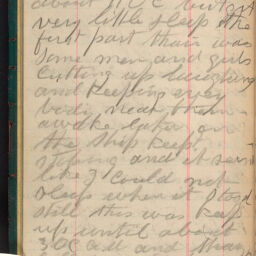 about
very little sleep the
first part their was
some men and girls
cutting up laughing
and keeping every
body near them
awake later on
the ship kept
stoping and it seem
like I could not
sleep when it stood
still this was kept
up until about
3 O C A M and than